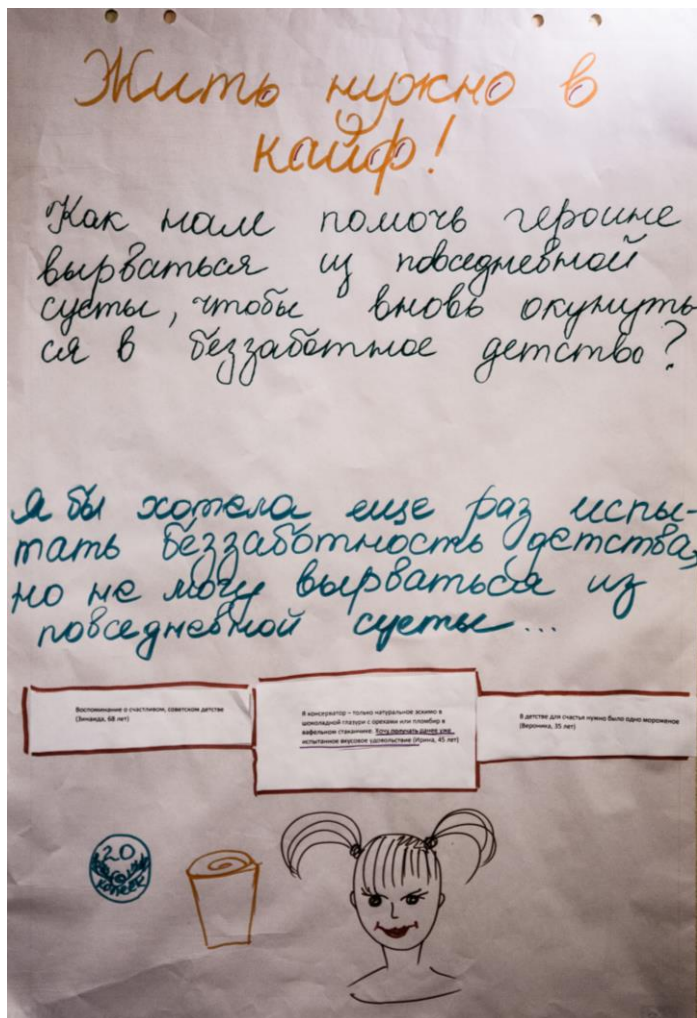 Жить нужно в
кайф!
Как нам помочь героине
вырваться из повседневной
суеты, чтобы вновь окунуть-
ся в беззаботное детство?
Я бы хотела еще раз испы-
тать беззаботность детства,
но не могу вырваться из
повседневной суеты...
Воспоминание о счастливом, советском детстве
(Зинаида, 68 лет)
Я консерватор – только натуральное эскимо в
шоколадной глазури с орехами или пломбир в
вафельном стаканчике. Хочу получать ранее уже
испытанное вкусовое удовольствие (Ирина, 45 лет)
В детстве для счастья нужно было одно мороженое
(Вероника, 35 лет)
20
копеек